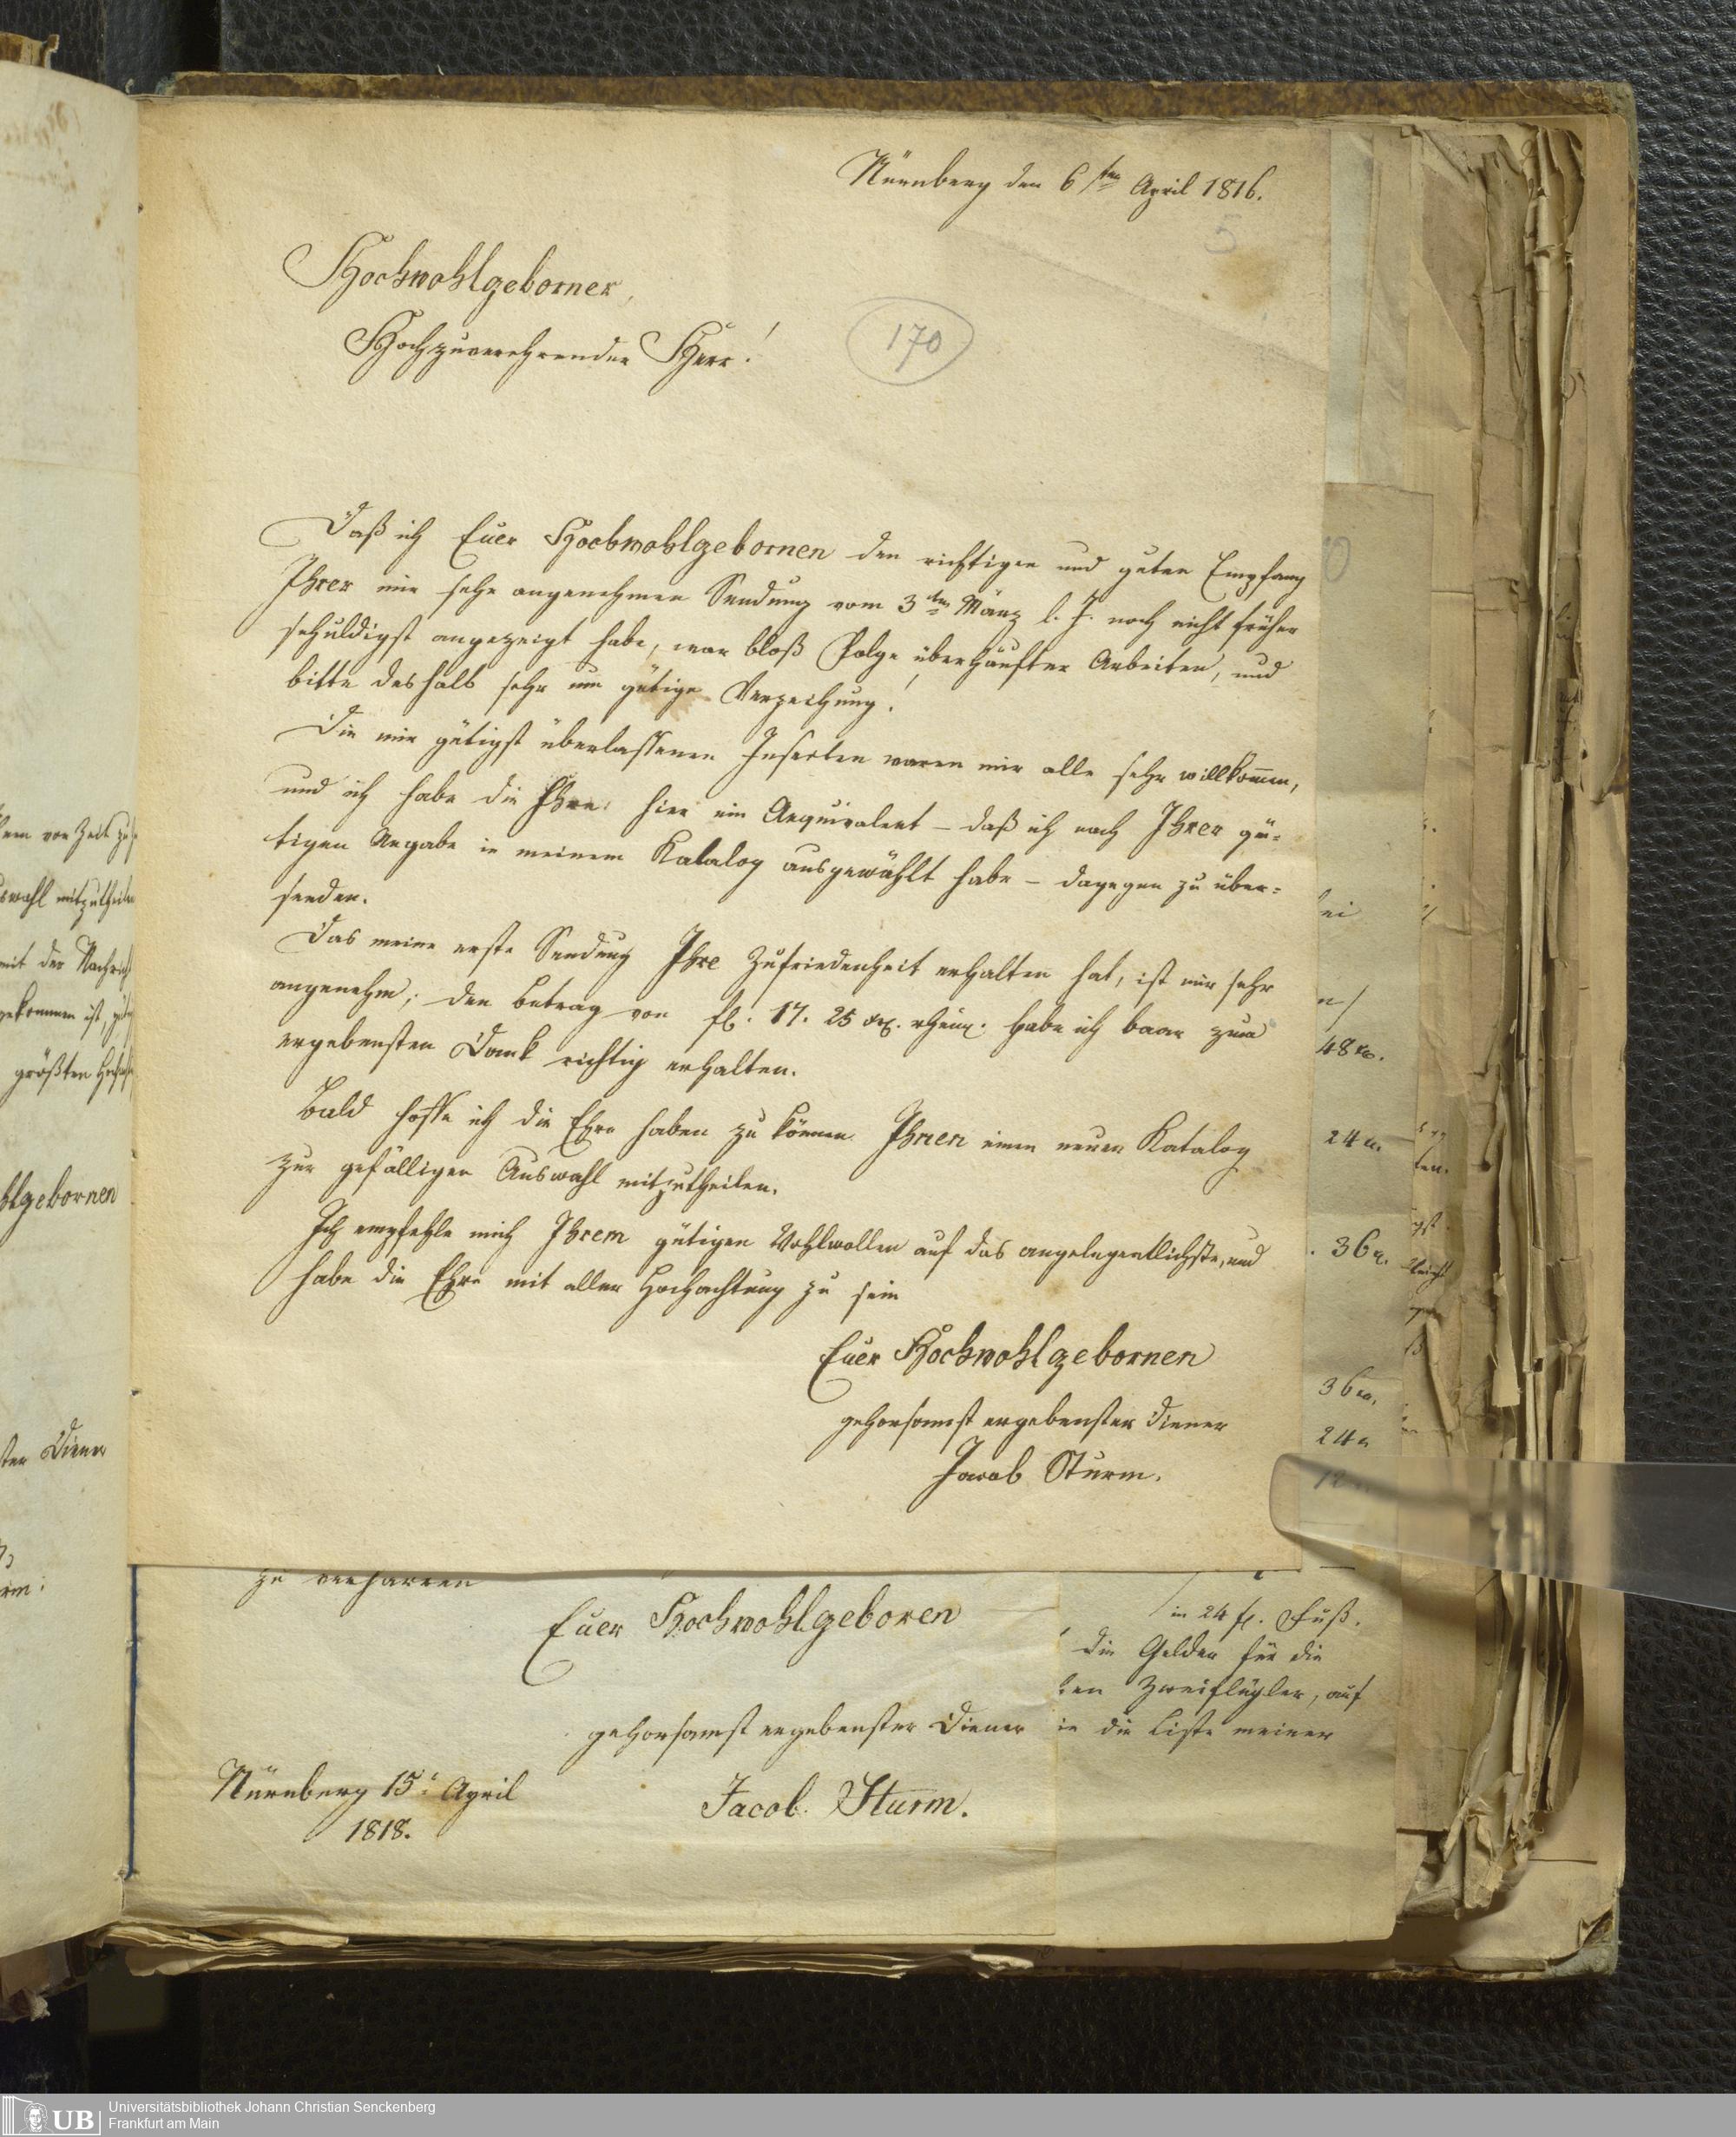 Nürnberg den 6ten April 1816.
5
Hochwohlgeborner,
Hochzuverehrender Herr!
170
Daß ich Euer Hochwohlgebornen den richtigen und guten Empfang
Ihrer mir sehr angenehmen Sendung vom 3ten März l. J. noch nicht früher
schuldigst angezeigt habe, war bloß Folge überhäufter Arbeiten, und
bitte deshalb sehr um gütige Verzeihung!
Die mir gütigst überlassenen Insecten waren mir alle sehr willkom̄en,
und ich habe die Ehre hier ein Aequivalent – daß ich nach Ihrer gü-
tigen Angabe in meinem Katalog ausgewählt habe – dagegen zu über-
senden.
Das meine erste Sendung Ihre Zufriedenheit erhalten hat, ist mir sehr
angenehm; den Betrag von fl. 17. 25 xr. rhein. habe ich baar zum
ergebensten Dank richtig erhalten.
Bald hoffe ich die Ehre haben zu können Ihnen einen neuen Katalog
zur gefälligen Auswahl mitzutheilen.
Ich empfehle mich Ihrem gütigen Wohlwollen auf das angelegentlichste, und
habe die Ehre mit aller Hochachtung zu sein
Euer Hochwohlgebornen
gehorsamst ergebenster Diener
Jacob Sturm.
zu verharren
Euer Hochwohlgeboren
gehorsamst ergebenster Diener
Nürnberg 15. April
1818.
Jacob Sturm.
in 24 fl. Fuß.
die Gelder für die
Zweiflügler, auf
in die Liste meiner
48 xr.
24
36
36
24
12
von Zeit zu
mitzutheilen
mit der Nachricht
gekommen ist,
größten
hlgebornen
ster Diener
UB
Universitätsbibliothek Johann Christian Senckenberg
Frankfurt am Main